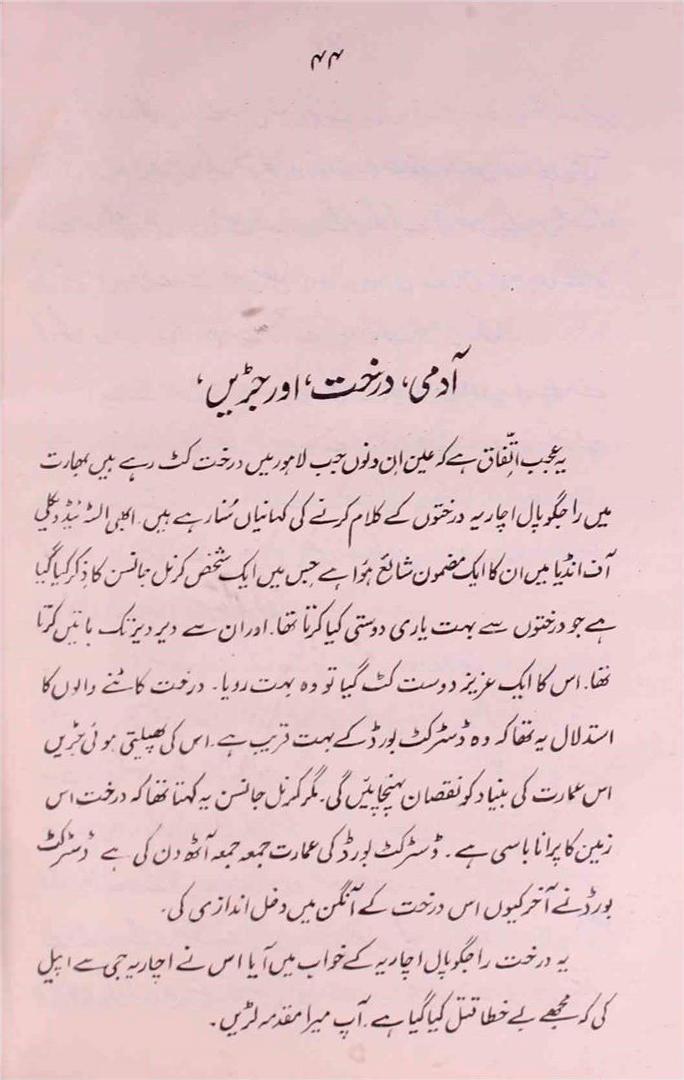 ۴۴
آدمی، درخت، اور جڑیں،
یہ عجب اتّفاق ہے کہ عین ان دنوں جب لاہور میں درخت کٹ رہے ہیں بھارت
میں راجگوپال اچاریہ درختوں کے کلام کرنے کی کہانیاں سُنا رہے ہیں۔ السٹریٹڈ ویکلی
آف انڈیا میں ان کا ایک مضمون شائع ہوا ہے جس میں ایک شخص کرنل جانسن کا ذکر کیا گیا
ہے جو درختوں سے بہت یاری دوستی کیا کرتا تھا۔ اور ان سے دیر دیر تک باتیں کرتا
تھا۔ اس کا ایک عزیز دوست کٹ گیا تو وہ بہت رویا۔ درخت کاٹنے والوں کا
استدلال یہ تھا کہ وہ ڈسٹرکٹ بورڈ کے بہت قریب ہے۔ اس کی پھیلتی ہوئی جڑیں
اس عمارت کی بنیاد کو نقصان پہنچائیں گی۔ مگر کرنل جانسن یہ کہتا تھا کہ درخت اس
زمین کا پرانا باسی ہے۔ ڈسٹرکٹ بورڈ کی عمارت جمعہ جمعہ آٹھ دن کی ہے ڈسٹرکٹ
بورڈ نے آخر کیوں اس درخت کے آنگن میں دخل اندازی کی۔
یہ درخت راجگوپال اچاریہ کے خواب میں آیا اس نے اچاریہ جی سے اپیل
کی کہ مجھے بے خطا قتل کیا گیا ہے۔ آپ میرا مقدمہ لڑیں۔